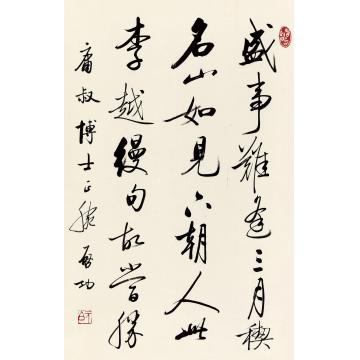 盛事難逢三月禊
名山如見六朝人此
李越縵句故當勝
庸叔博士正腕啟功